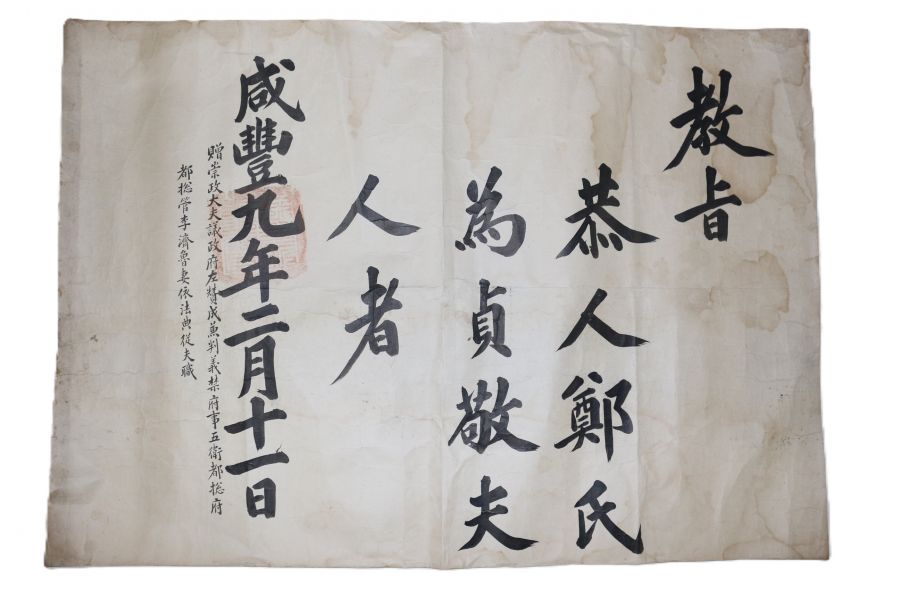 教旨
恭人鄭氏
為貞敬夫
人者
咸豐九年二月十一日
贈崇政大夫議政府左賛成兼判義禁府事五衛都㧾府
都㧾管李濟魯妻依法典從夫職